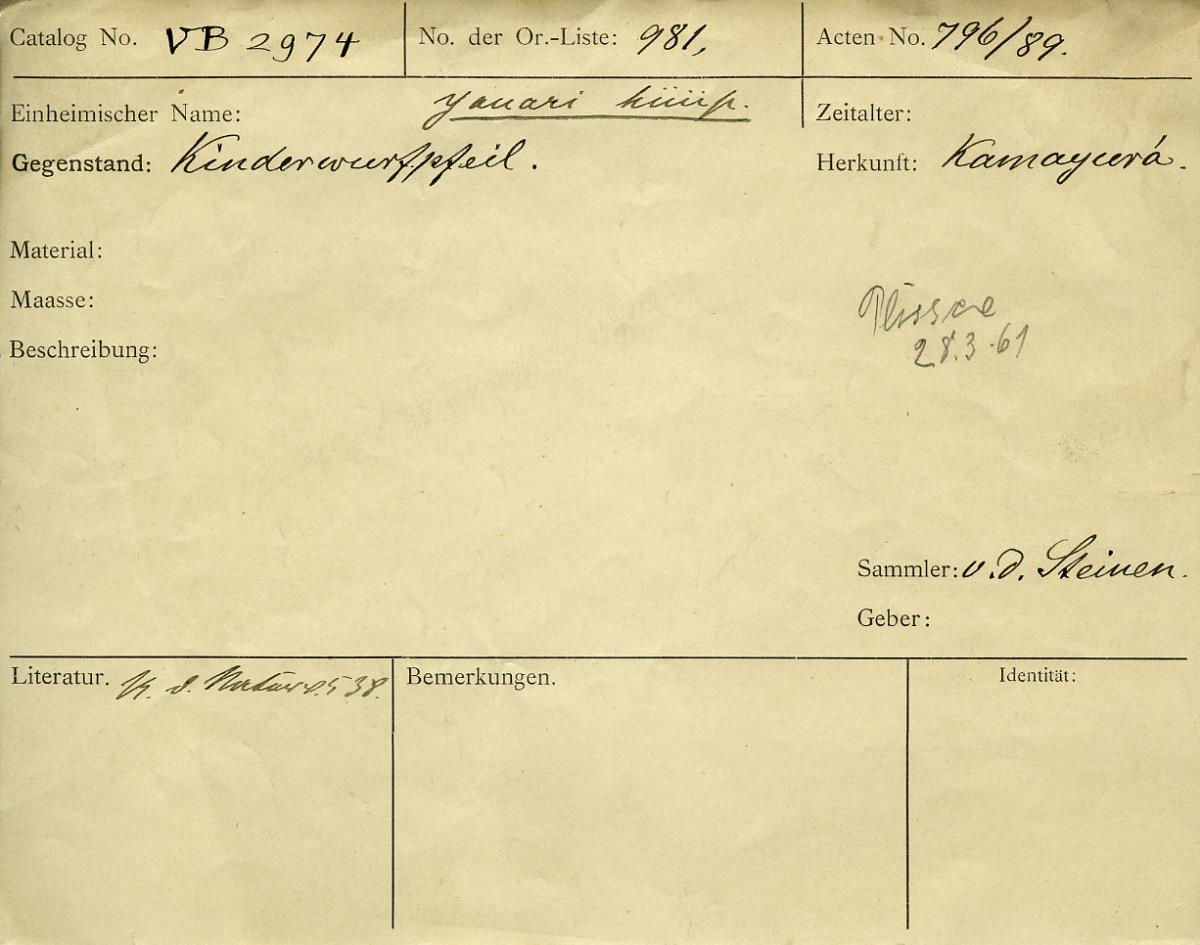 Catalog No. VB 2974 No. der Or.-Liste: 981, Acten No. 796/89.
Einheimischer Name: yauari Zeitalter:
Gegenstand: Kinderwurfpfeil. Herkunft: Kamayurá.
Material:
Maasse:
28.3.61
Beschreibung:
Sammler: v. d. Steinen.
Geber:
Literatur. Bemerkungen. Identität: